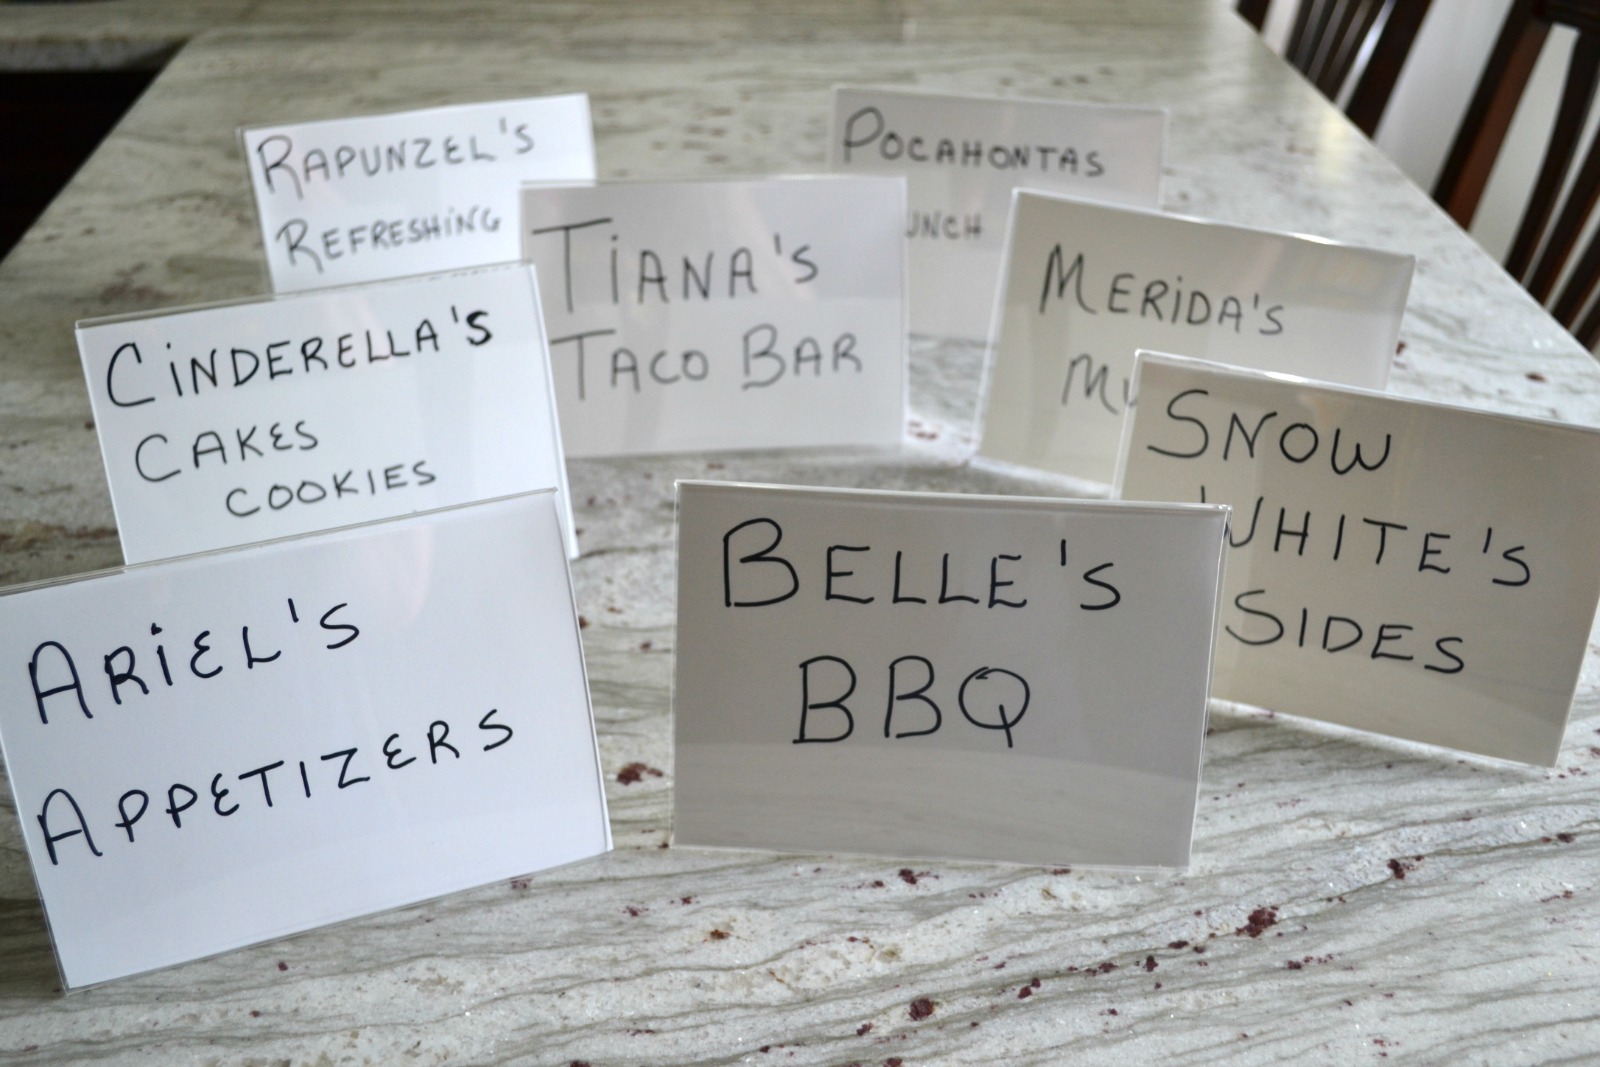 RAPUNZEL'S
REFRESHING
POCAHONTAS
TIANA'S
TACO BAR
MERIDA'S
CINDERELLA'S
CAKES
COOKIES
SNOW
WHITE'S
SIDES
ARIEL'S
APPETIZERS
BELLE'S
BBQ